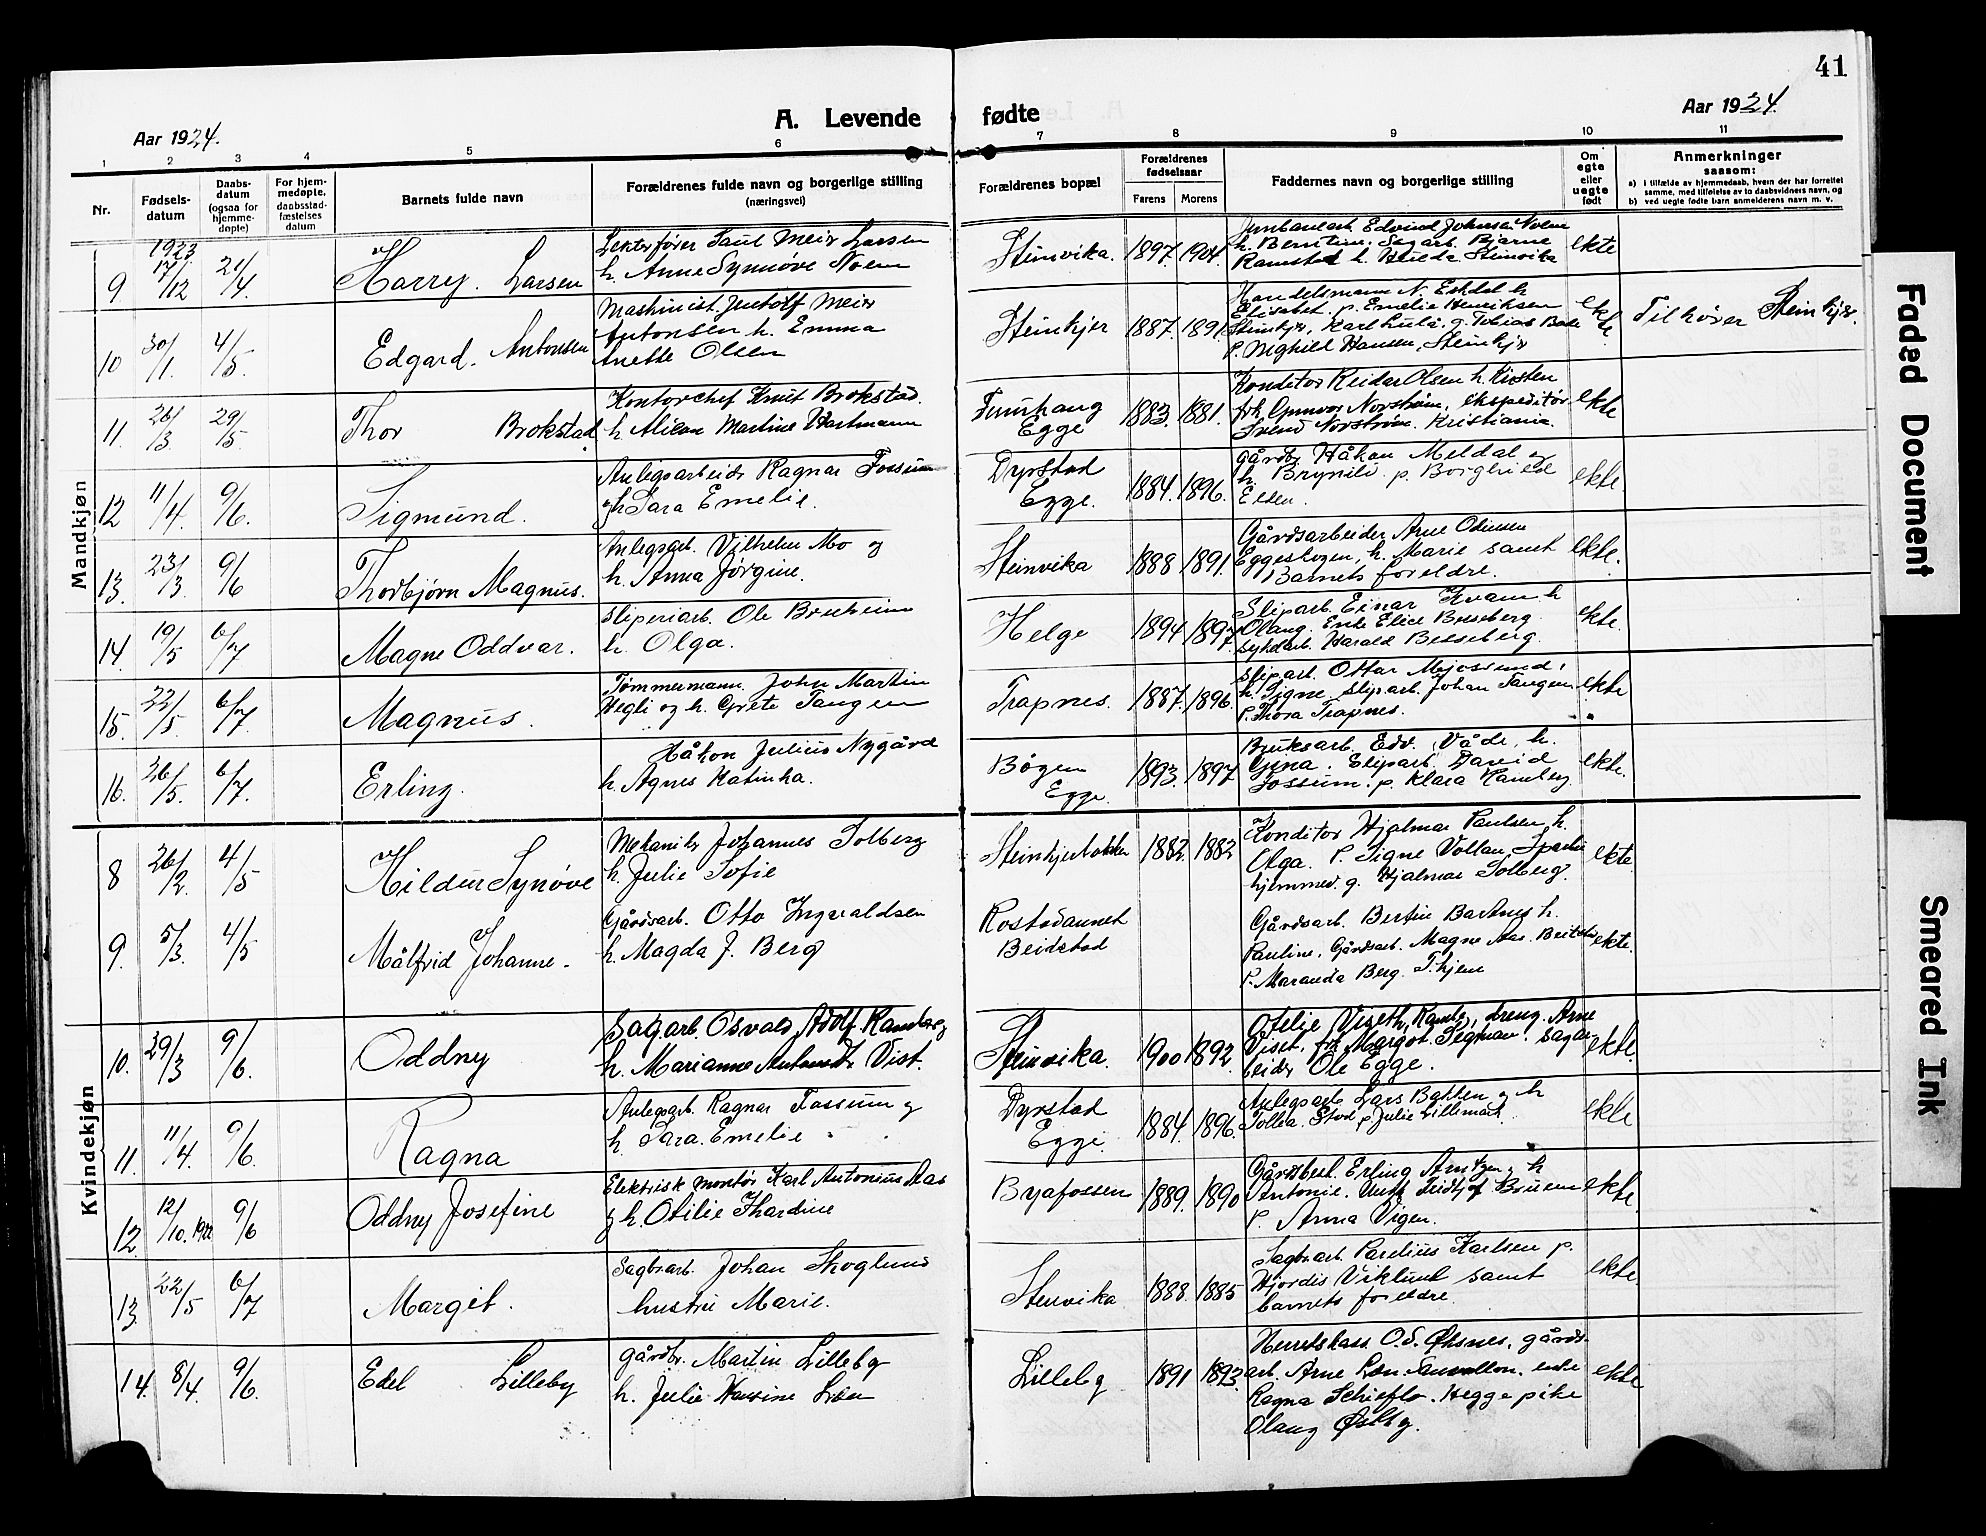 41
A. Levende fødte
Aar 1924.
Aar 1924.
1 2 3 4 5 6 7 8 9 10 11
Nr.
Fødsels-
datum
Daabs-
datum
(ogsaa for
hjemme-
døpte)
For hjem-
medøpte,
daabsstad-
fæstelses
datum
Barnets fulde navn
Forældrenes fulde navn og borgerlige stilling
(næringsvei)
Forældrenes bopæl
Forældrenes
fødselsaar
Farens Morens
Faddernes navn og borgerlige stilling
Om
egte
eller
uegte
født
Anmerkninger
saasom:
a) i tilfælde av hjemmedaab, hvem der har forrettet
samme, med tilføielse av to daabsvidners navn, og
b) ved uegte fødte barn anmelderens navn m. v.
Mandkjøn
9 1923 17/12 21/4 Harry. Larsen
Paul Meier Larsen
h. Anne Synnøve Noem
Steinvika. 1897. 1904.
Edvind Johnsen Noem
h. Berntine. Sagarb. Bjarne
Ramstad h. Hilda Steinvika
ekte
10 30/1. 4/5. Edgard. Antonsen
Maskinist Meier
Antonsen h. Emma
Anette Olsen
Steinkjer 1887. 1891.
Handelsmann N. Ekdal h
Elisabet. p. Emelie Henriksen
Steinkjer, Karl g. Tobias
p. Hansen, Steinkjer
ekte.
Tilhører Steinkjer.
11. 26/3 29/5 Thor Brokstad
Kontorchef Knut Brokstad.
h. Martine Hartmann
Egge 1883. 1881.
Konditor Reidar Olsen h. Kirsten
frk. Gunvor Norstrøm, ekspeditør
Svend Norstrøm. Kristiania.
ekte
12 11/4. 9/6. Sigmund.
Anlegsarbeider Ragnar Fossum
og h Sara Emelie.
Dyrstad
Egge. 1884. 1896.
gårdbr Håkon Meldal og
h. Brynild p. Borghild
ekte
13. 23/3. 9/6 Thorbjørn Magnus.
Anlegsarb. Vilhelm Mo og
h. Anna Jørgine.
Steinvika 1888 1891.
Gårdsarbeider Arne Odinsen
Eggeskogen, h. Marie samt
Barnets foreldre.
ekte.
14. 19/5 6/7 Magne Oddvar.
Sliperiarb. Ole Brenheim
h. Olga.
Helge 1894 1897
Sliparb. Einar Kvam h
Olaug. Enke Elise Besseberg
Harald Besseberg.
ekte.
15. 22/5 6/7 Magnus.
Tømmermann. John Martin
Hegli og h. Grete Tangen
Trapnes. 1887. 1896.
Sliparb. Ottar
h. Signe. Sliparb. Johan Tangen
p. Thora Trapnes.
ekte
16. 26/5. 6/7. Erling.
Håkon Julius Nygård
h. Agnes Katinka.
Bøgen
Egge. 1893. 1897
Bruksarb. Edv. Våde, h.
Gina. Sliparb. David
Fossum. p. Klara Ramberg
ekte.
Kvindekjøn
8 26/2. 4/5 Hildur Synøve
Mekaniker Johannes Solberg
h. Julie Sofie
1882. 1882
Konditor Hjalmar Paulsen h.
Olga. p. Signe Vollan
hjemmev. g. Hjalmar Solberg.
ekte
9. 5/3. 4/5 Målfrid Johanne.
Gårdsarb. Otto Ingvaldsen
h. Magda J. Berg
Rostadaunet
Beidstad
Gårdsarb. Bertin Bartnes h.
Pauline, Gårdsarb. Magne Aas.
p. Maranda Berg.
ekte.
10. 29/3 9/6. Oddny
Sagarb. Osvald Adolf Ramberg
h. Marianne Vist.
Steinvika. 1900 1892
Otelie dreng. Arne
Viset, frk. Margot Segman. Sagar-
beider Ole Egge.
ekte.
11. 11/4. 9/6. Ragna
Anlegsarb. Ragnar Fossum og
h. Sara. Emelie
Dyrstad
Egge. 1884. 1896.
Anlegsarb Lars Bakken og h
Stod p Julie
ekte
12. 12/10. 1922 9/6 Oddny Josefine
Elektrisk montør Karl Antonius Aas
og h. Otilie
Byafossen 1889. 1890
Gårdbest. Erling Arntzen og h
Antonie. Fridtjof Bruem
p. Anna Vigen.
ekte
13. 22/5 6/7 Margit.
Sagbrarb. Johan Skoglund
hustru Marie.
Stenvika 1888. 1885
Sagbrarb. Parelius Karlsen p.
Hjordis Viklund samt
barnets foreldre.
ekte
14. 8/4 9/6. Edel Lilleby
gårdbr. Martin Lilleby
h. Julie
Lilleby 1891 1893.
Herredskass. O. S. Øksnes, gårds-
arb. Arne enke
Ragna Schiefloe. Hegge pike
Olaug Østby.
ekte
Faded Document
Smeared Ink